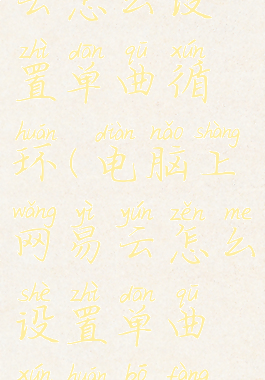 云怎么设
zhì dān qǔ xún
置单曲循
huán diàn nǎo shàng
环(电脑上
wǎng yì yún zěn me
网易云怎么
shè zhì dān qǔ
设置单曲
xún huán bō fàng